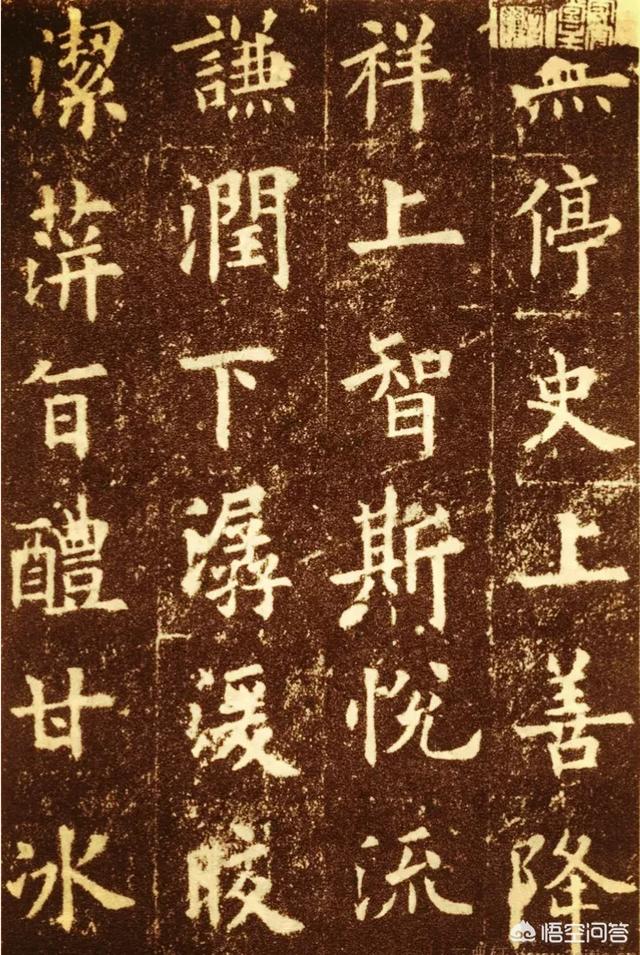 無停史上善降
祥上智斯悅流
謙潤下潺湲皎
潔蓱旨醴甘冰
悟空问答